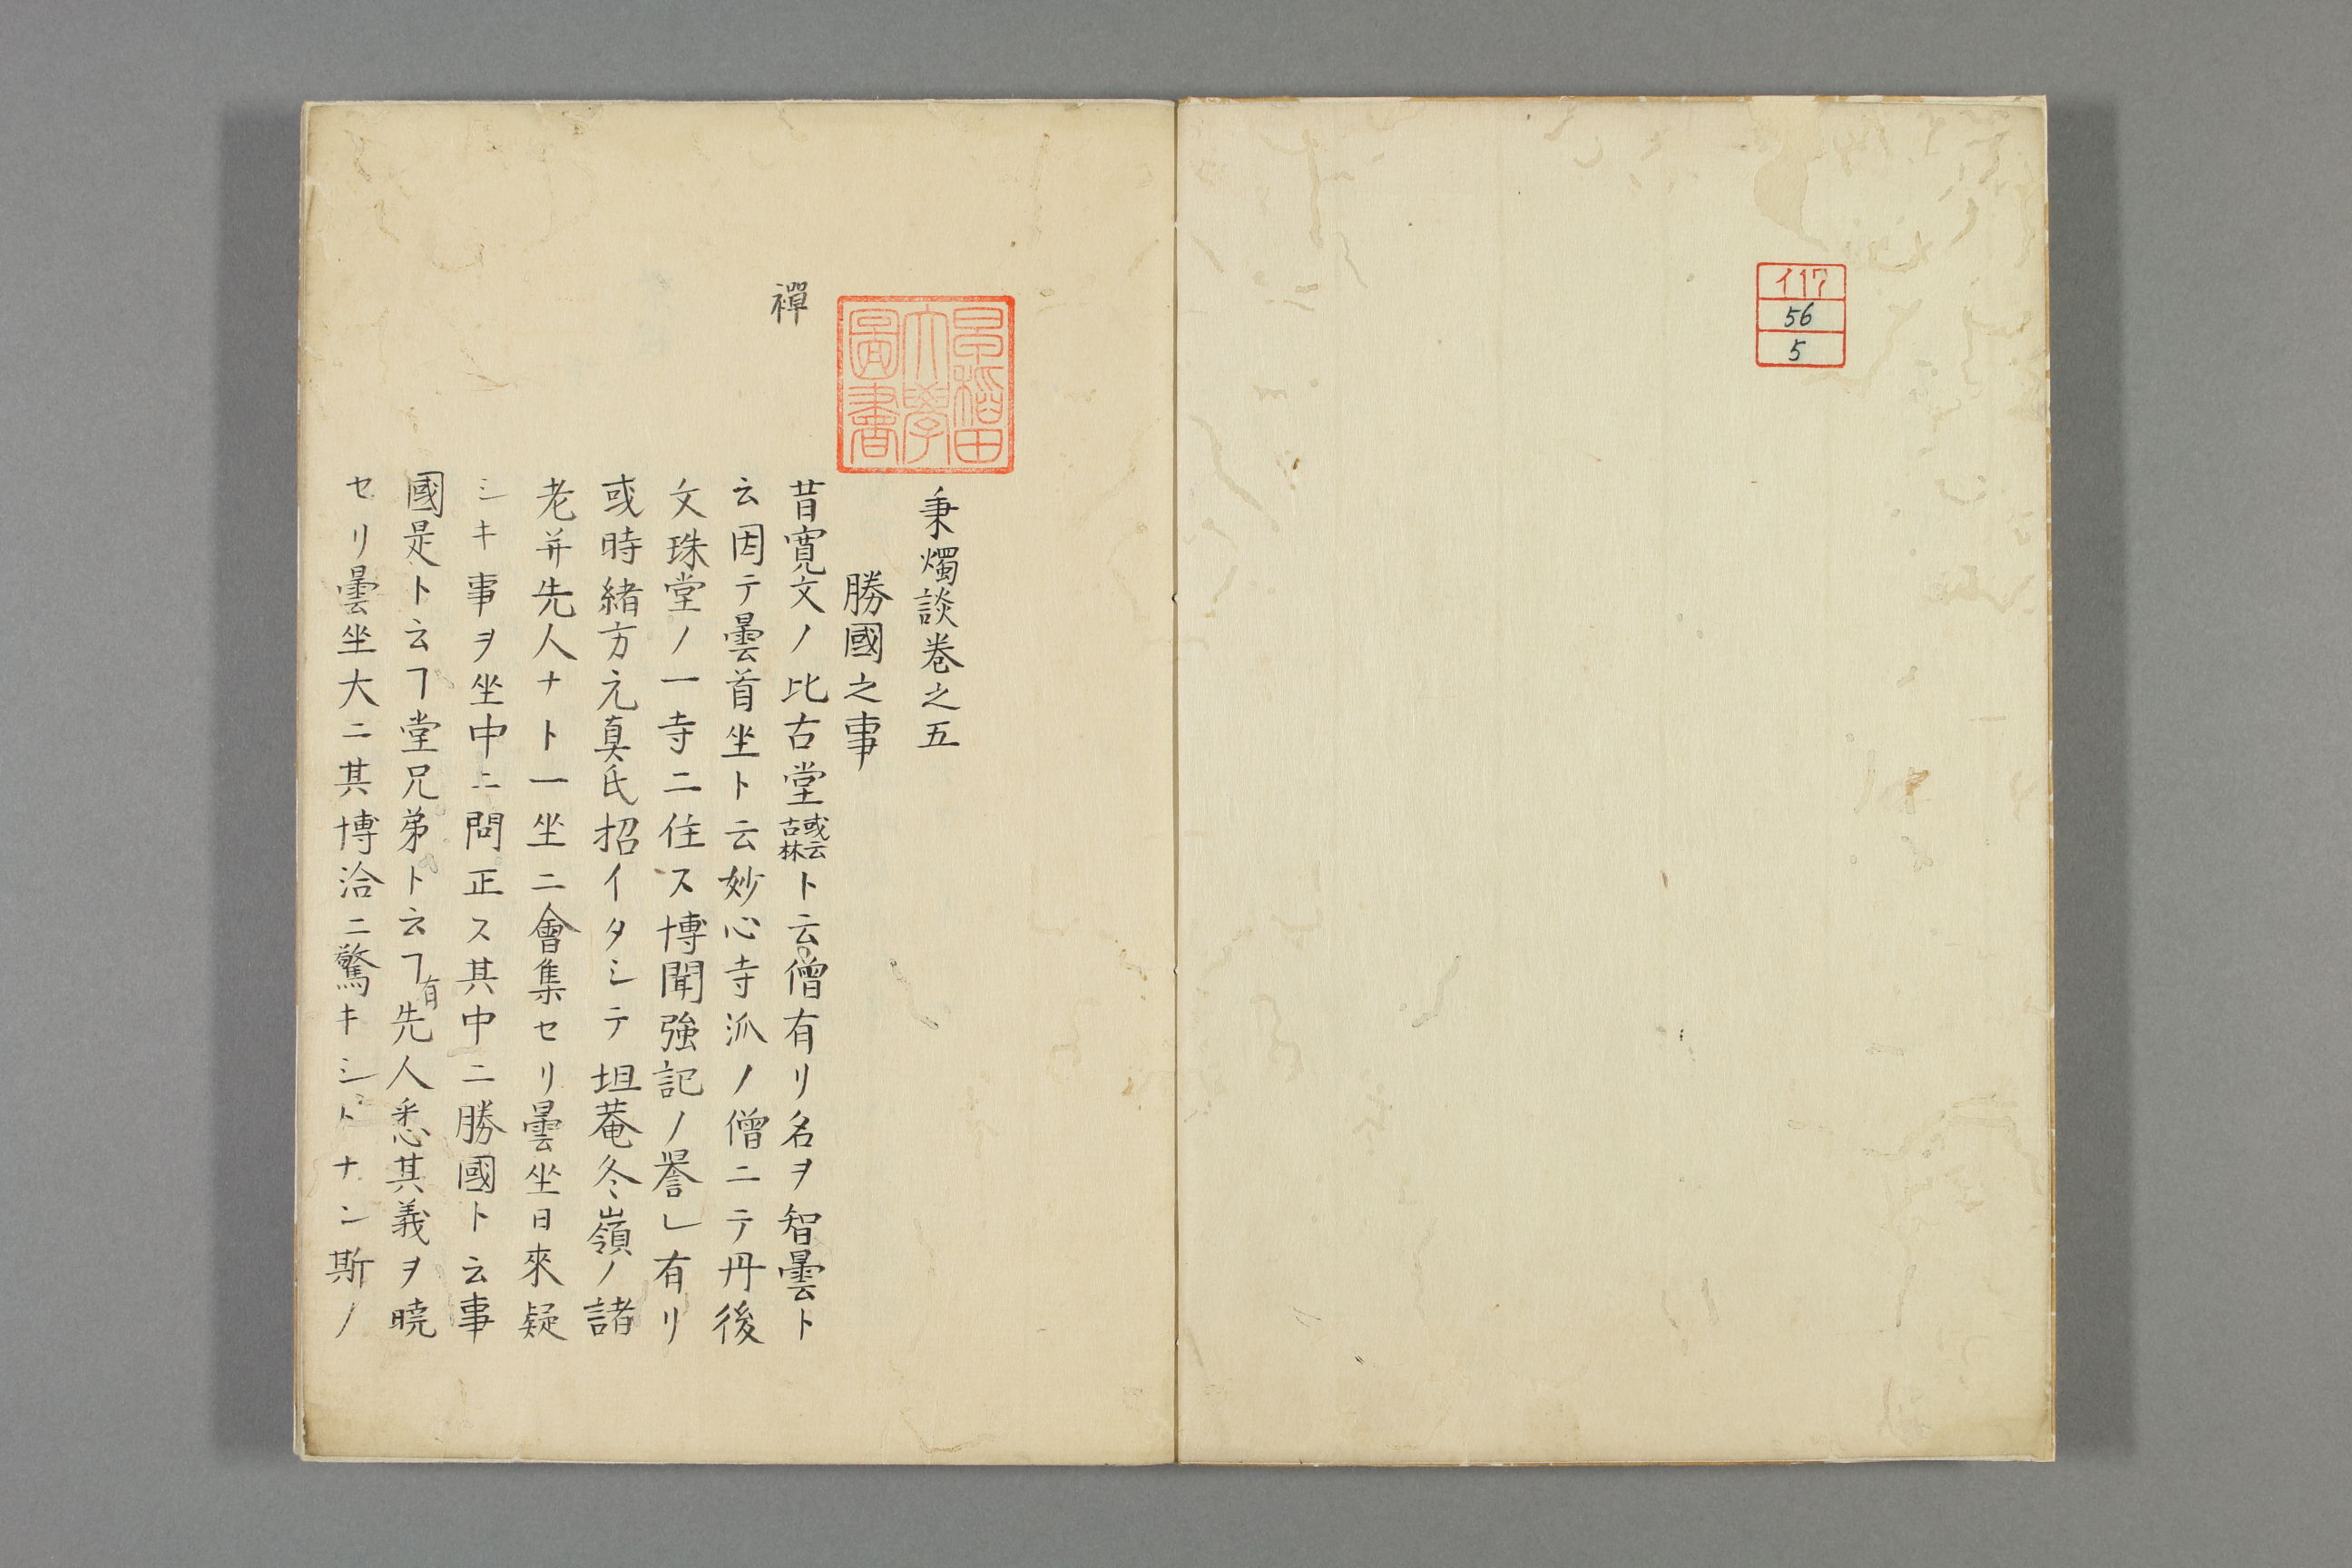 イ17
56
5
早稲田
大學
圖書
秉燭談卷之五
勝國之事
禪
昔寛文ノ比古堂或云古林ト云僧有リ名ヲ智曇ト
云因テ曇首坐ト云妙心寺派ノ僧ニテ丹後
文珠堂ノ一寺ニ住ス博聞強記ノ誉レ有リ
或時緒方元真氏招イタシテ坦菴冬嶺ノ諸
老并先人ナト一坐ニ會集セリ曇坐日來疑
シキ事ヲ坐中ニ問正ス其中ニ勝國ト云事
國是ト云ヿ堂兄弟ト云ヿ有先人悉其義ヲ曉
セリ曇坐大ニ其博洽ニ驚キシトナン斯ノ